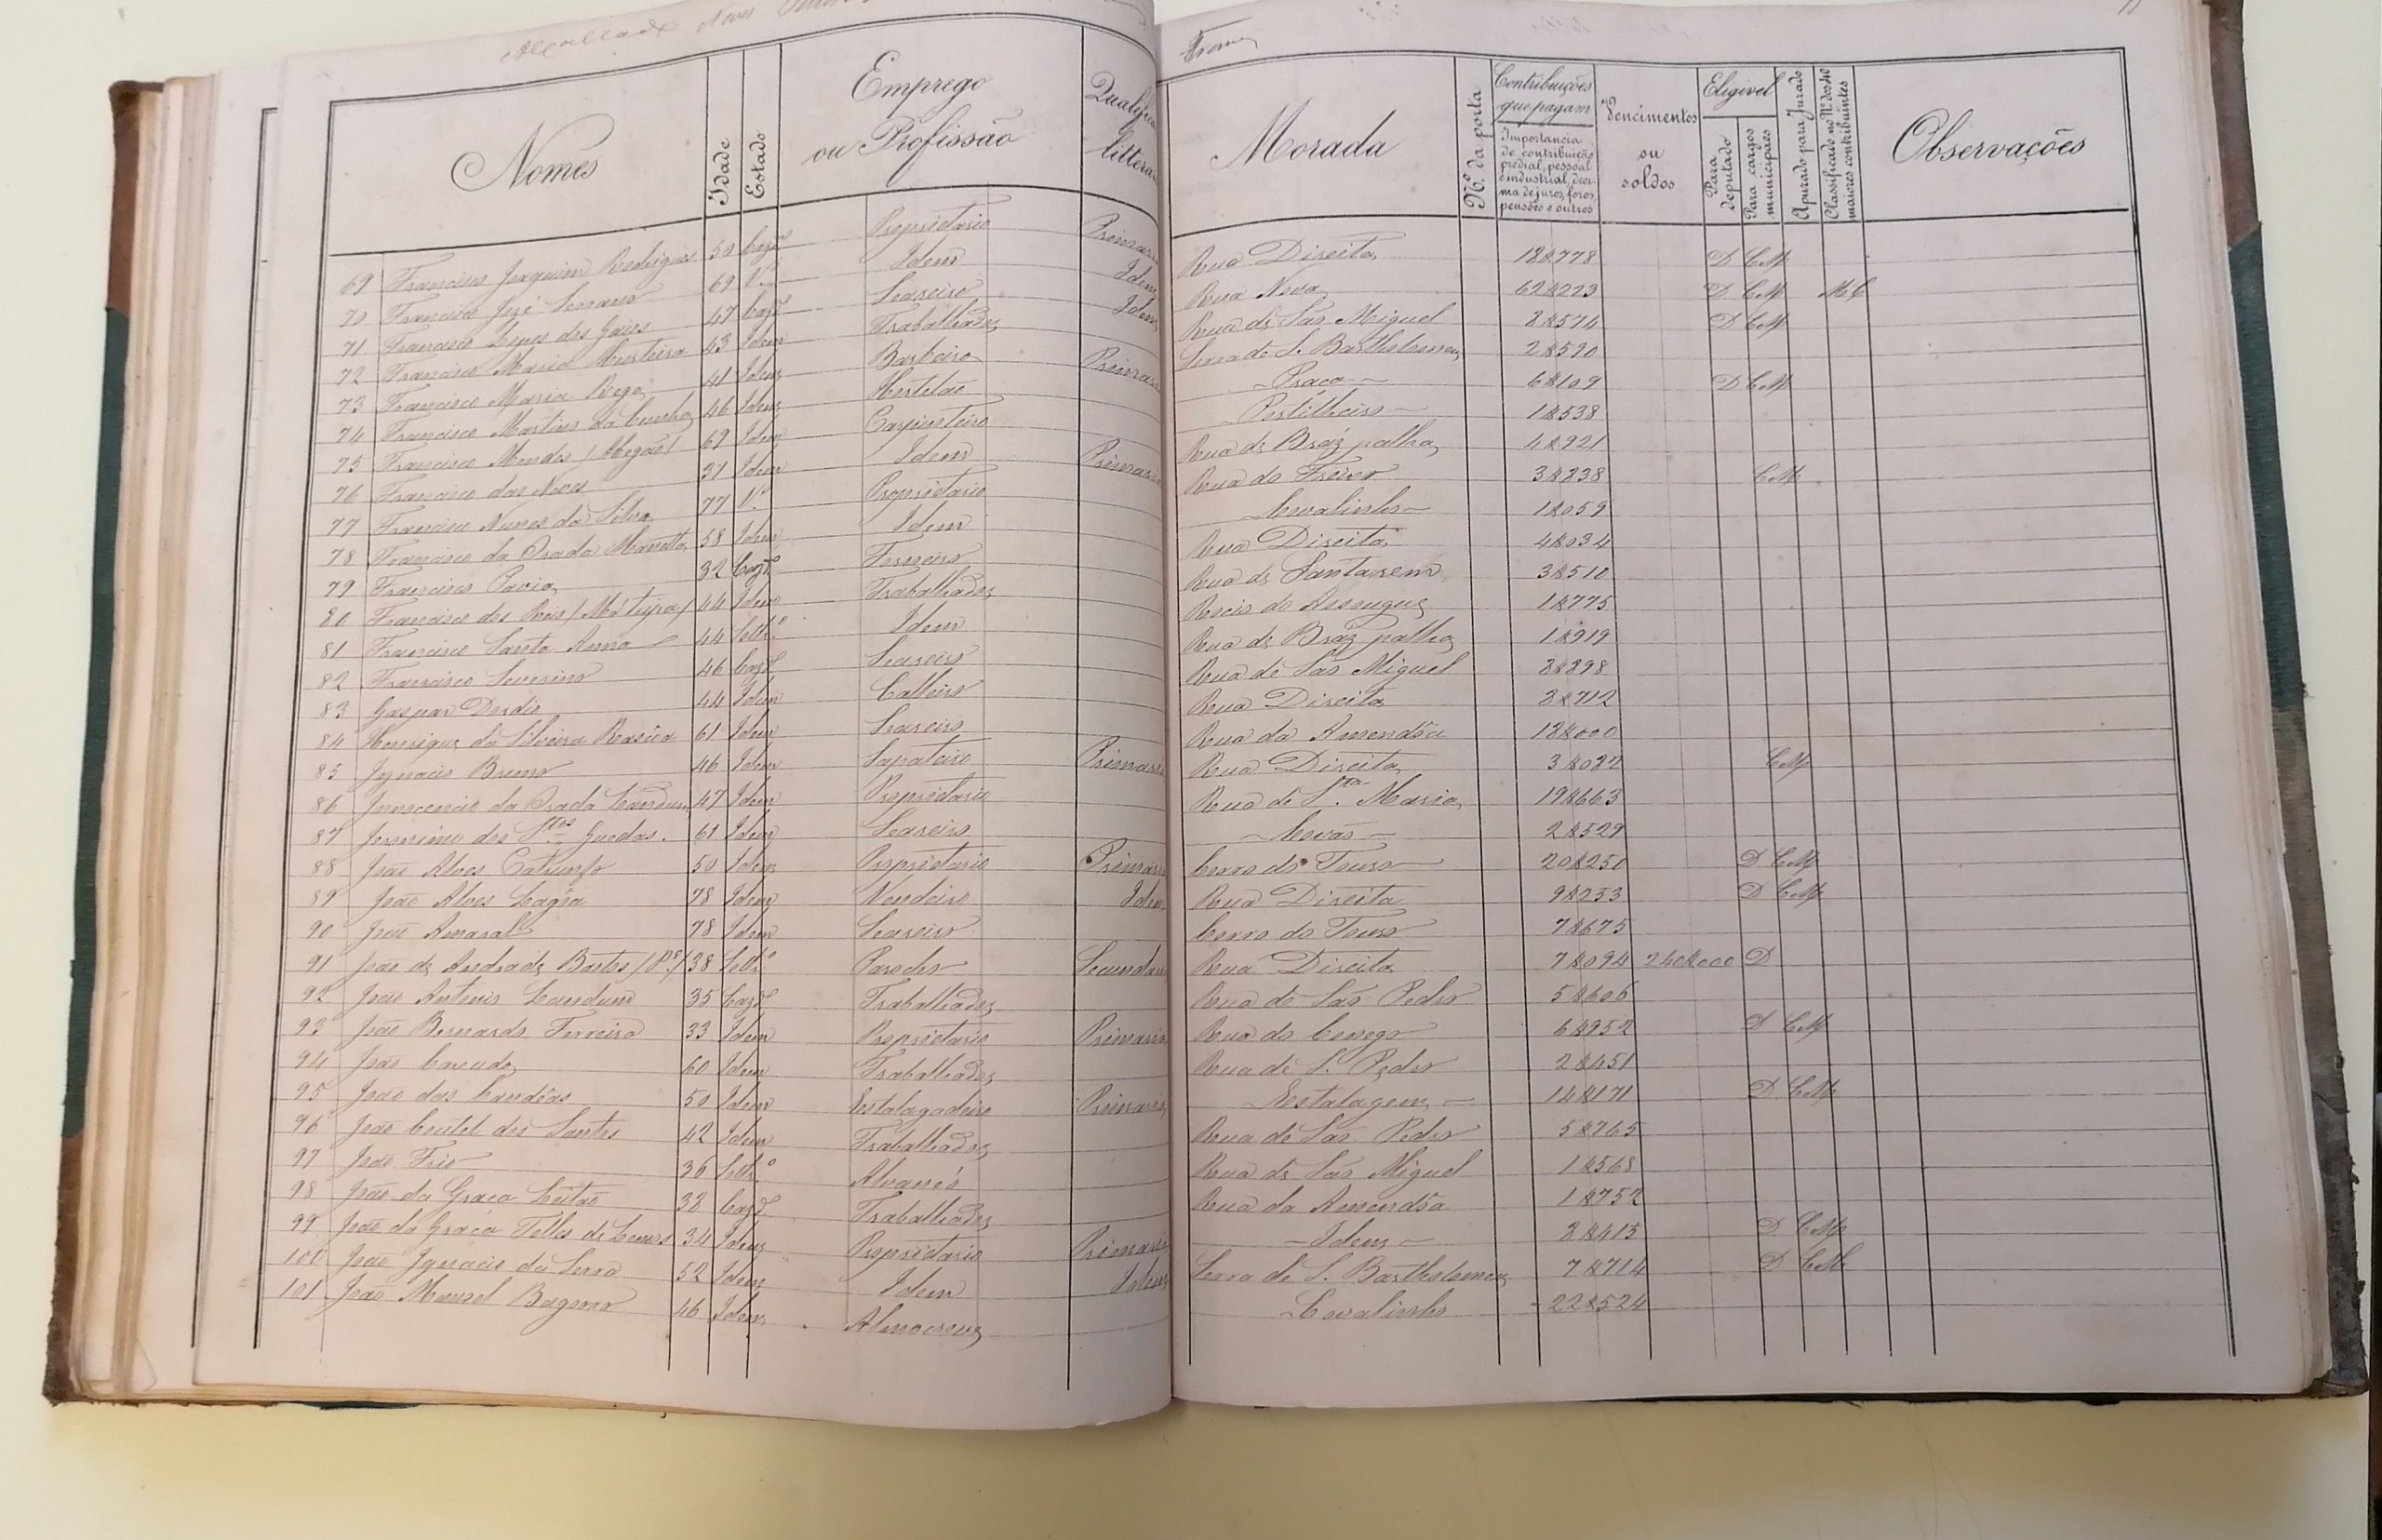 Nomes Idade Estado Emprego ou Profissão Morada Nº. da porta Contribuições que pagam Importancia de contribuição predial, pessoal e industrial, deci-ma de juros, foros, pensões e outros Vencimentos ou soldos Eligivel Para deputado Para cargos municipaes Apurado para Jurado Classificado no Nº. dos 40 maiores contribuintes Observações
69 Francisco Joaquim Rodrigues 50 Cazdo Proprietario Primaria Rua Direita 18$778 D CM
70 Francisco José Serrano 69 Vo Idem Idem Rua Nova 62$223 D CM MC
71 Francisco Lopes dos Gaios 47 Cazdo Seareiro Idem Rua de São Miguel 8$574 D CM
72 Francisco Maria 43 Idem Trabalhador Serra de S. Bartholomeu 2$590
73 Francisco Maria Rego 41 Idem Barbeiro Primaria Praça 6$109 D CM
74 Francisco Martins da Cunha 46 Idem Hortelão Postilheiro 1$538
75 Francisco Mendes (Abegão) 69 Idem Carpinteiro Rua de Bráz palha 4$921
76 Francisco das Neves 31 Idem Idem Primaria Rua do Freixo 3$238 CM
77 Francisco Nunes da Silva 77 Vo Proprietario Covalinho 1$059
78 Francisco da Orada 58 Idem Idem Rua Direita 4$034
79 Francisco Pavia 32 Cazdo Forneiro Rua de Santarem 3$510
80 Francisco dos Reis 44 Idem Trabalhador Rocio do Assougue 1$775
81 Francisco Santa Anna 44 Soltro Idem Rua de Braz palha 1$919
82 Francisco Severino 46 Cazdo Seareiro Rua de São Miguel 8$898
83 Gaspar Dordio 44 Idem Rua Direita 8$712
84 Henrique da Silveira 61 Idem Seareiro Rua da Amendôa 18$000
85 Ignacio Bruno 46 Idem Sapateiro Primaria Rua Direita 3$082 CM
86 Innocencio da Orada Landum 47 Idem Proprietario Rua de Sta. Maria 19$663
87 Jeronimo dos Stos Guedas. 61 Idem Seareiro Covão 2$529
88 João Alves Catrunfo 50 Idem Proprietario Primaria Cerro do Touro 20$250 D CM
89 João Alves Lagôa 78 Idem Vendeiro Idem Rua Direita 9$253 D CM
90 João Amaral 78 Idem Seareiro Cerro do Touro 7$675
91 João de Andrade Bastos (Pe.) 38 Soltro Parocho Secundaria Rua Direita 7$094 240$000 D
92 João Antonio Landum 35 Cazdo Trabalhador Rua de São Pedro 5$606
93 João Bernardo Ferreira 33 Idem Proprietario Primaria Rua do Conego 6$952 D CM
94 João 60 Idem Trabalhador Rua de S. Pedro 2$451
95 João das Candêas 50 Idem Estalagadeiro Primaria Estalagem 14$171 D CM
96 João Coutel dos Santos 42 Idem Trabalhador Rua de São Pedro 5$765
97 João Frio 36 Soltro Alvanéo Rua de São Miguel 1$568
98 João da Graça Leitão 38 Cazdo Trabalhador Rua da Amendôa 1$752
99 João da Graça Telles de Lemos 34 Idem Proprietario Primaria Idem 8$415 D CM
100 João Ignacio da Serra 52 Idem Idem Idem Serra de S. Bartholomeu 7$714 D CM
101 João Manoel Bagorro 46 Idem Almocreve Covalinho 22$524